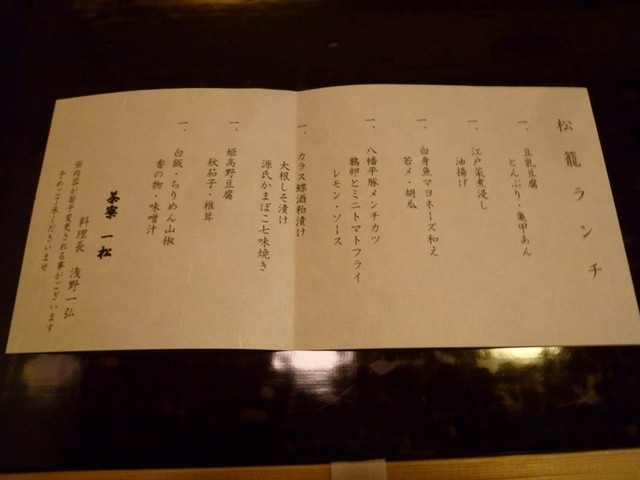 松籠ランチ
一、豆乳豆腐
とんぶり・亀甲あん
一、江戸菜煮浸し
油揚げ
一、白身魚マヨネーズ和え
若メ・胡瓜
一、八幡平豚メンチカツ
鶉卵とミニトマトフライ
レモン・ソース
一、カラス鰈酒粕漬け
大根しそ漬け
源氏かまぼこ七味焼き
一、姫高野豆腐
秋茄子・椎茸
一、白飯・ちりめん山椒
香の物・味噌汁
茶寮 一松
料理長 浅野一弘
※内容が若干変更される事がございます
予めご了承くださいませ